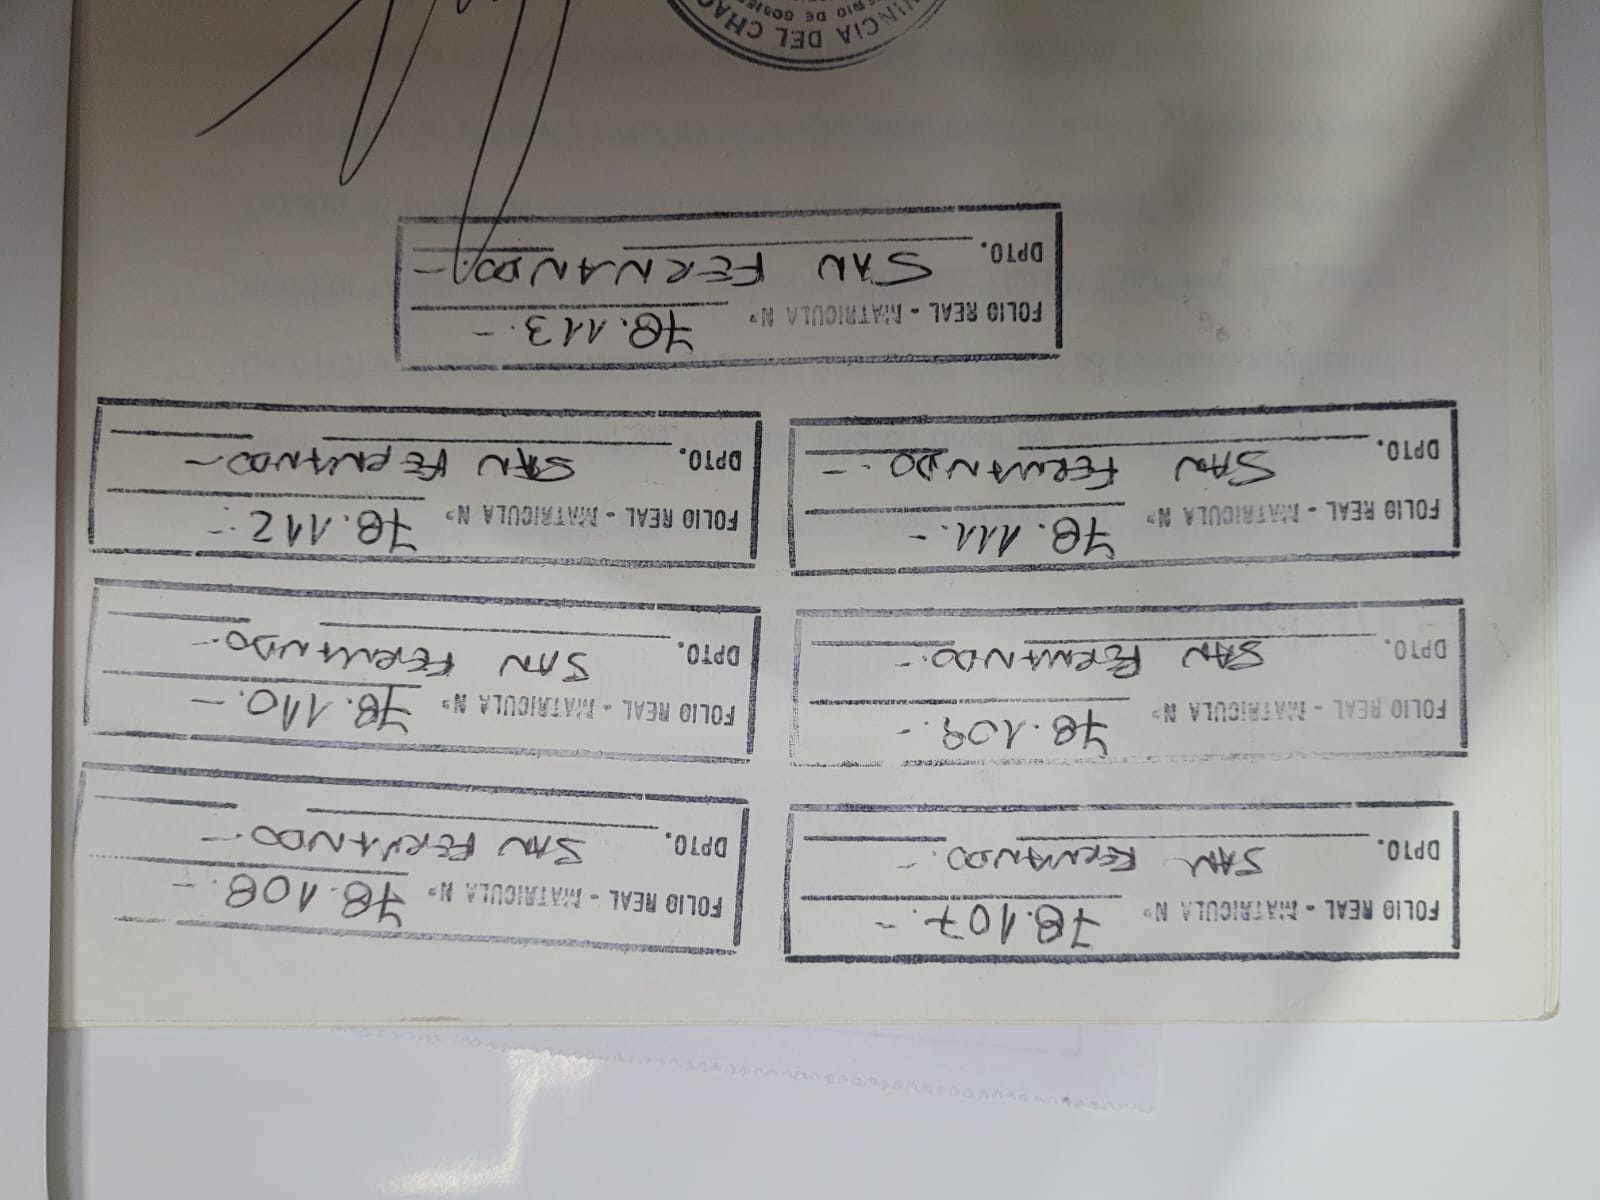 FOLIO REAL - MATRICULA Nº 78.107.-
DPTO. SAN FERNANDO.-
FOLIO REAL - MATRICULA Nº 78.108.-
DPTO. SAN FERNANDO.-
FOLIO REAL - MATRICULA Nº 78.109.-
DPTO. SAN FERNANDO.-
FOLIO REAL - MATRICULA Nº 78.110.-
DPTO. SAN FERNANDO.-
FOLIO REAL - MATRICULA Nº 78.111.-
DPTO. SAN FERNANDO.-
FOLIO REAL - MATRICULA Nº 78.112.-
DPTO. SAN FERNANDO.-
FOLIO REAL - MATRICULA Nº 78.113.-
DPTO. SAN FERNANDO.-
INCIA DEL CHAC